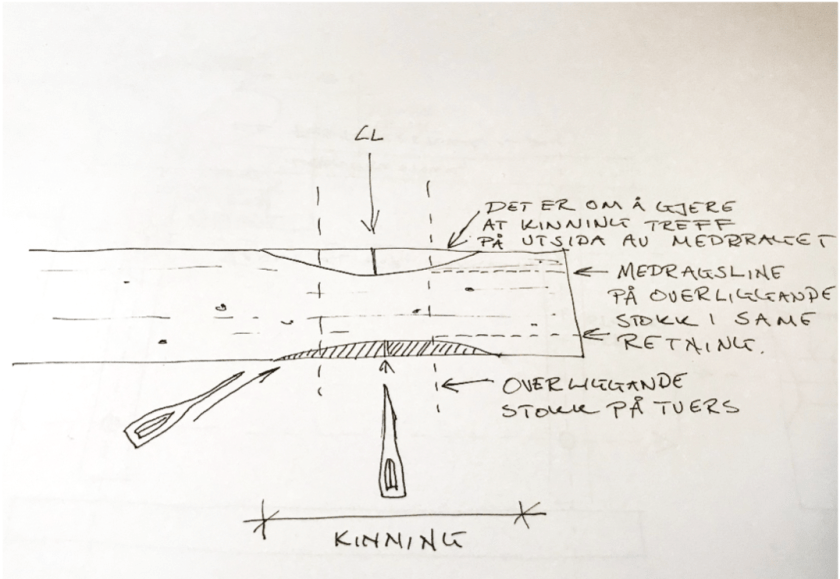 CL
DET ER OM Å GJERE
AT KINNING TREFF
PÅ UTSIDA AV MEDDRAGET
MEDRAGSLINE
PÅ OVERLIGGANDE
STOKK I SAME
RETNING.
OVERLIGGANDE
STOKK PÅ TVERS
KINNING